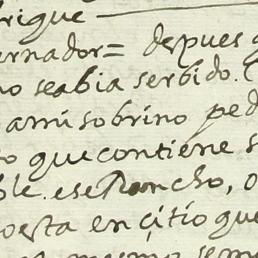 rigue
ernador = depues q
no seabia serbido.
amisobrino ped
o que contiene s
ble. ese Rancho, o
oesta en çitio que
mesmo sem